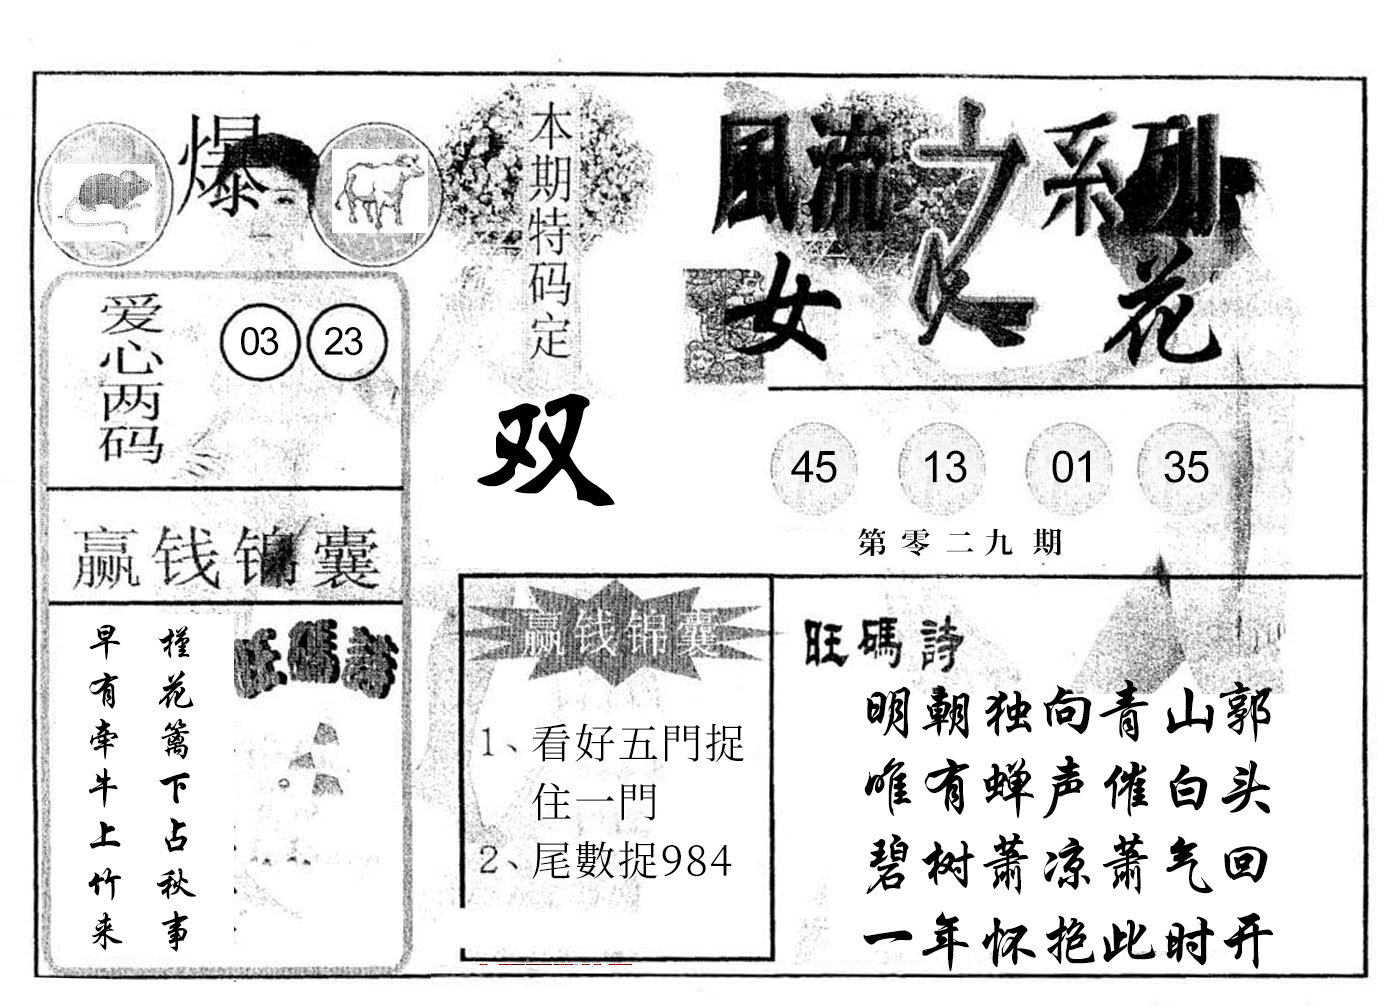 爆
本期特码定
双
風流之系列
女人花
爱心两码
03 23
45 13 01 35
第零二九期
赢钱锦囊
槿花篱下占秋事
早有牵牛上竹来
旺碼詩
赢钱锦囊
1、看好五門捉
住一門
2、尾數捉984
旺碼詩
明朝独向青山郭
唯有蝉声催白头
碧树萧凉萧气回
一年怀抱此时开